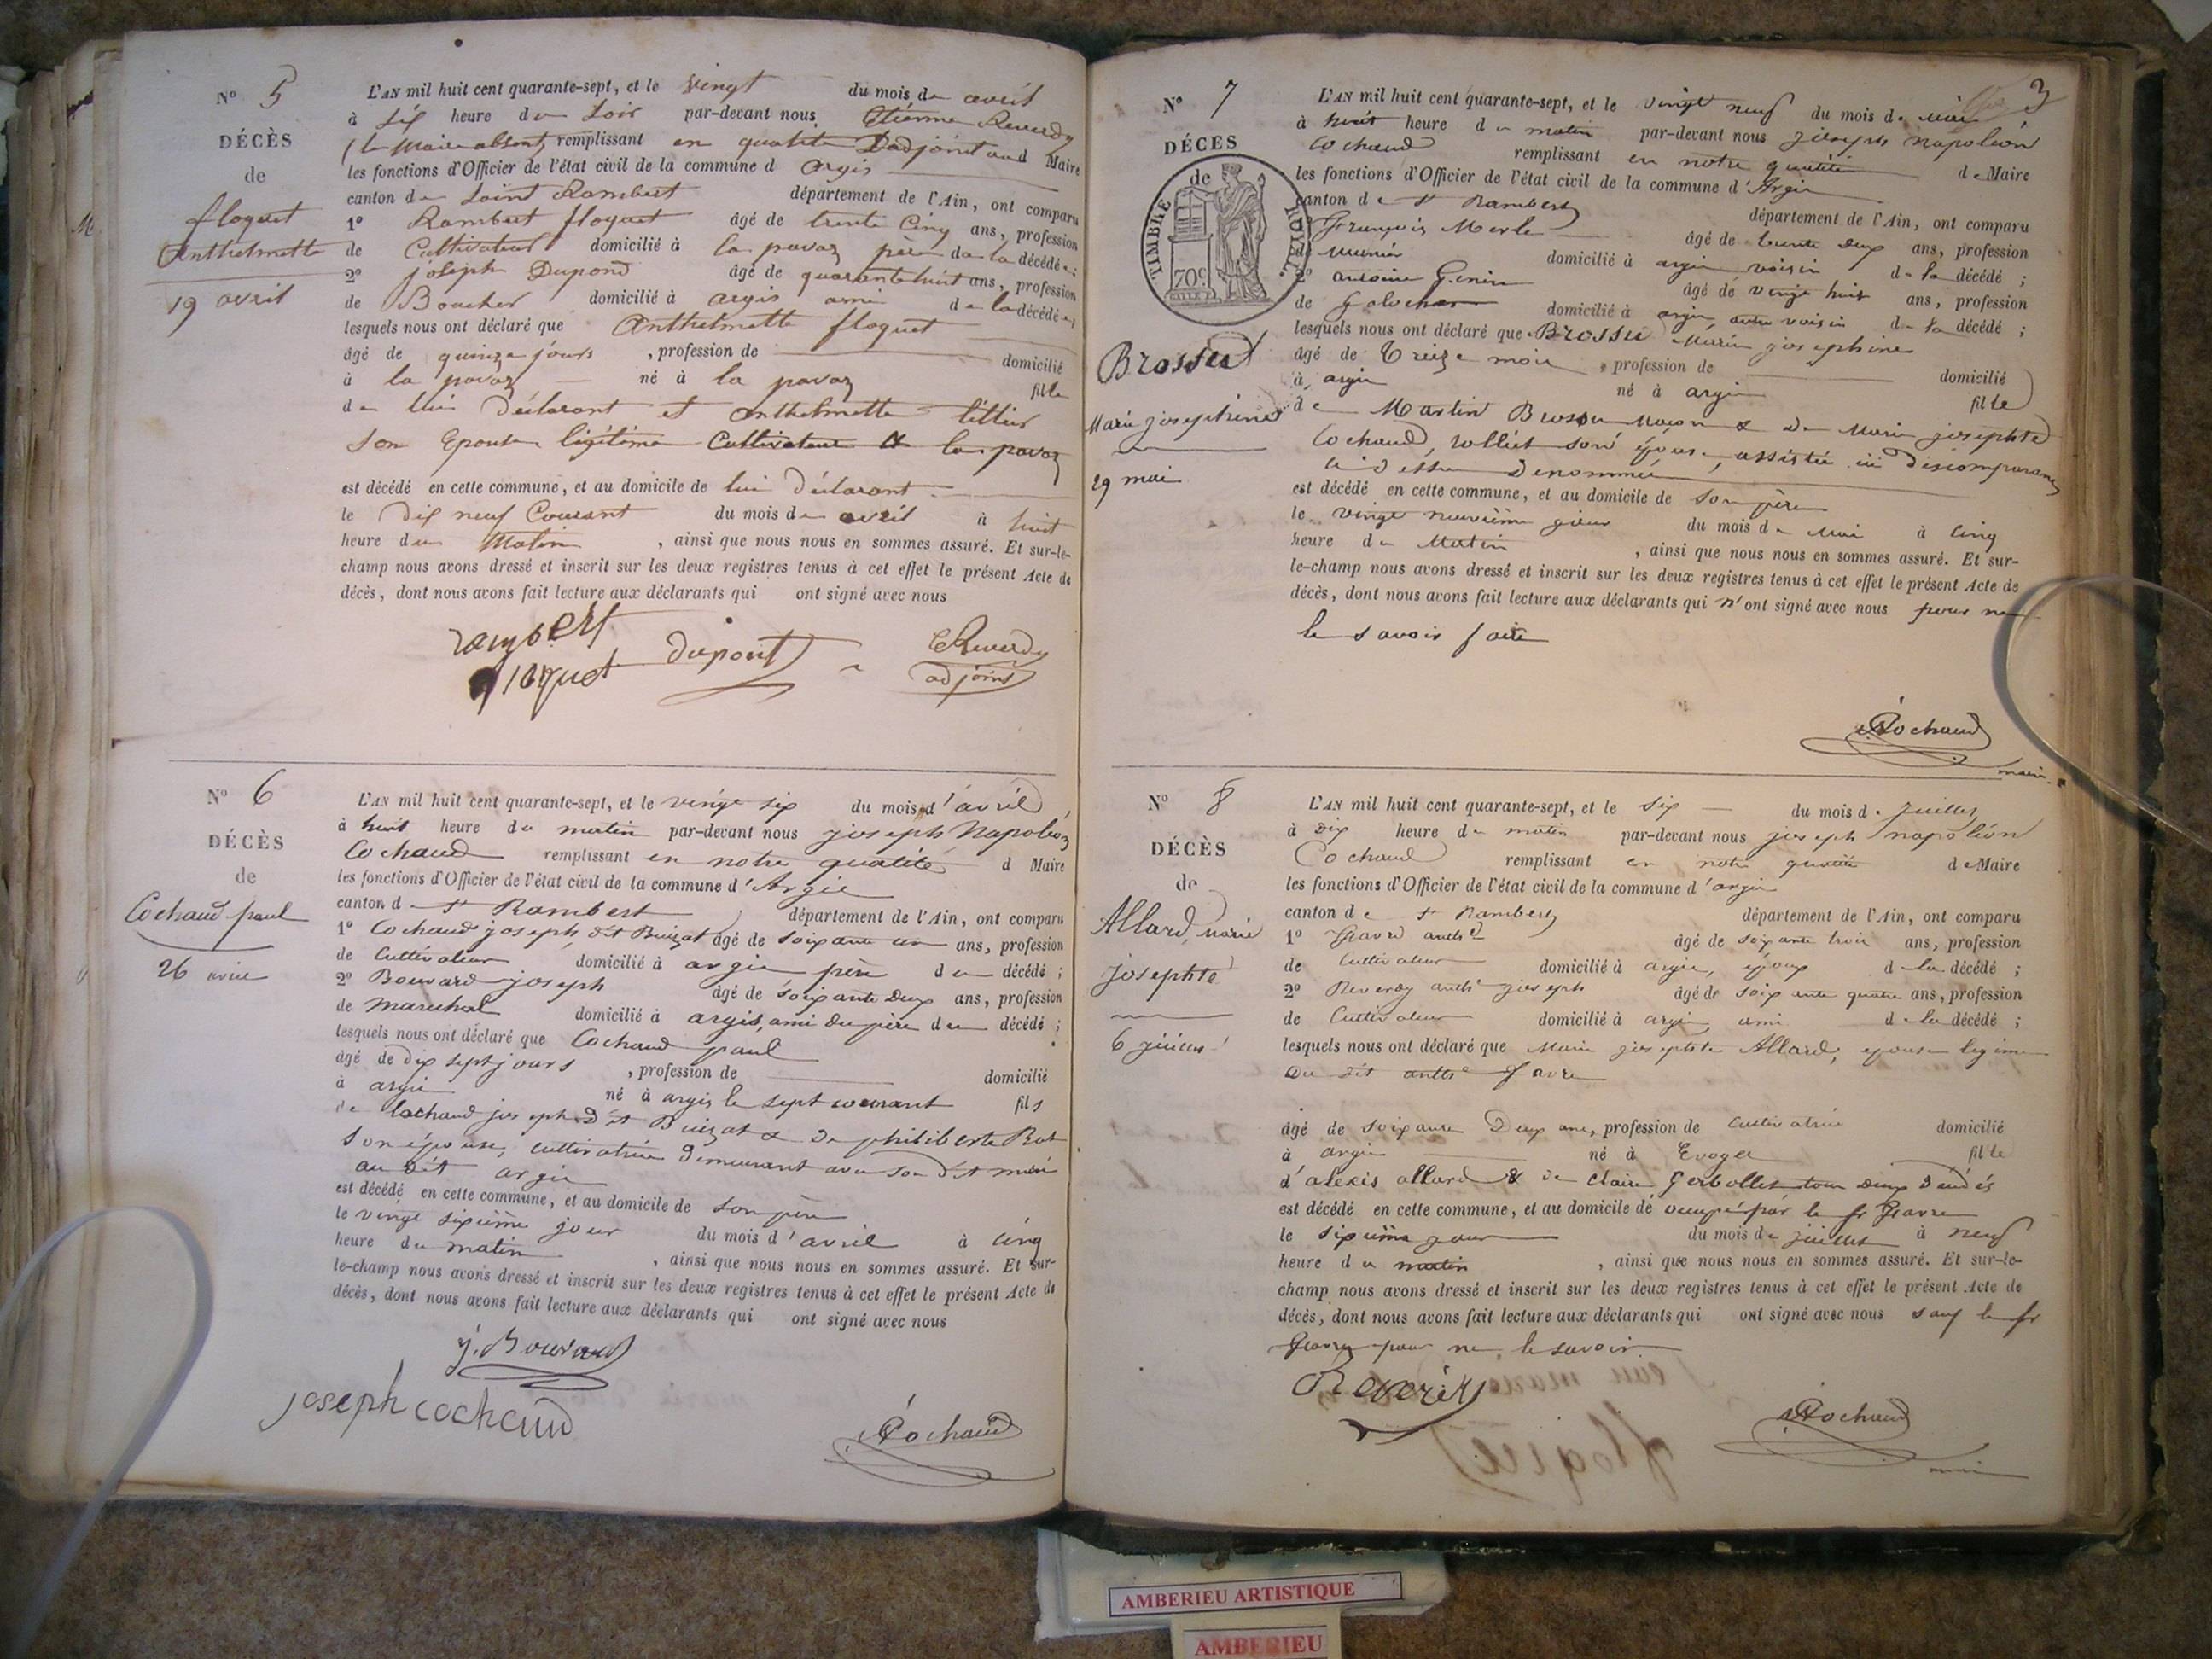 N° 5
DÉCÈS
de
floquet
Anthelmette
19 avril
L'AN mil huit cent quarante-sept, et le vingt du mois de avril
à six heure du soir par-devant nous Etienne Reverdy
(le Maire absent) remplissant en qualité D'adjoint au d Maire
les fonctions d'Officier de l'état civil de la commune d argis
canton de Saint Rambert département de l'Ain, ont comparu
1° Rambert floquet âgé de trente Cinq ans, profession
de Cultivateur domicilié à la pavaz père de la décédée ;
2° joseph Dupond âgé de quarante huit ans, profession
de Boucher domicilié à argis ami de la décédée ;
lesquels nous ont déclaré que Anthelmette floquet
âgé de quinze jours , profession de domicilié
à la pavaz né à la pavaz fille
de lui Déclarant et Anthelmette
son Epouse légitime Cultivateur à la pavaz
est décédé en cette commune, et au domicile de lui déclarant
le dix neuf Courant du mois de avril à huit
heure du Matin , ainsi que nous nous en sommes assuré. Et sur-le-
champ nous avons dressé et inscrit sur les deux registres tenus à cet effet le présent Acte de
décès, dont nous avons fait lecture aux déclarants qui ont signé avec nous
rambert
floquet dupont EReverdy
adjoint
N° 6
DÉCÈS
de
Cochaud paul
26 avril
L'AN mil huit cent quarante-sept, et le vingt six du mois d'avril
à huit heure du matin par-devant nous joseph Napoléon
Cochaud remplissant en notre qualité d Maire
les fonctions d'Officier de l'état civil de la commune d'Argis
canton de St Rambert département de l'Ain, ont comparu
1° Cochaud joseph dit Buizat âgé de soixante un ans, profession
de Cultivateur domicilié à argis père du décédé ;
2° Bouvard joseph âgé de soixante Deux ans, profession
de marechal domicilié à argis, ami du père du décédé ;
lesquels nous ont déclaré que Cochaud paul
âgé de dix sept jours , profession de domicilié
à argis né à argis le sept courant fils
de Cochaud joseph dit Buizat & de philiberte
son épouse, cultivatrice demeurant avec son dit mari
au dit argis
est décédé en cette commune, et au domicile de son père
le vingt sixième jour du mois d'avril à cinq
heure du matin , ainsi que nous nous en sommes assuré. Et sur-
le-champ nous avons dressé et inscrit sur les deux registres tenus à cet effet le présent Acte de
décès, dont nous avons fait lecture aux déclarants qui ont signé avec nous
j. Bouvard
joseph cochaud
Cochaud
3
N° 7
DÉCES
de
TIMBRE ROYAL
70c
Brossu
Marie josephine
29 mai
L'AN mil huit cent quarante-sept, et le vingt neuf du mois de mai
à huit heure du matin par-devant nous joseph napoléon
Cochaud remplissant en notre qualité de Maire
les fonctions d'Officier de l'état civil de la commune d'Argis
canton de St Rambert département de l'Ain, ont comparu
1° François Merle âgé de trente deux ans, profession
de meunier domicilié à argis voisin de la décédé ;
2° antoine Genin âgé de vingt huit ans, profession
de domicilié à argis, autre voisin de la décédé ;
lesquels nous ont déclaré que Brossu Marie josephine
âgé de Treize mois , profession de domicilié
à argis né à argis fille
de Martin Brossu maçon & de Marie josephte
Cochaud, son épouse, assistée
ci dessus Denommée
est décédé en cette commune, et au domicile de son père
le vingt neuvième jour du mois de mai à cinq
heure du Matin , ainsi que nous nous en sommes assuré. Et sur-
le-champ nous avons dressé et inscrit sur les deux registres tenus à cet effet le présent Acte de
décès, dont nous avons fait lecture aux déclarants qui n'ont signé avec nous pour ne
le savoir faire
Cochaud
maire
N° 8
DÉCÈS
de
Allard, marie
josephte
6 juillet
L'AN mil huit cent quarante-sept, et le six du mois de juillet
à Dix heure du matin par-devant nous joseph napoléon
Cochaud remplissant en notre qualité de Maire
les fonctions d'Officier de l'état civil de la commune d'argis
canton de St Rambert département de l'Ain, ont comparu
1° Favre âgé de soixante trois ans, profession
de Cultivateur domicilié à argis, époux de la décédé ;
2° Reverdy joseph âgé de soixante quatre ans, profession
de Cultivateur domicilié à argis, ami de la décédé ;
lesquels nous ont déclaré que Marie josephte Allard, epouse legime
du dit favre
âgé de soixante Deux ans, profession de cultivatrice domicilié
à argis né à Evoges fille
d'alexis allard & de Claire tous deux
est décédé en cette commune, et au domicile de occupé par le sr Favre
le sixième jour du mois de juillet à neuf
heure du matin , ainsi que nous nous en sommes assuré. Et sur-le-
champ nous avons dressé et inscrit sur les deux registres tenus à cet effet le présent Acte de
décès, dont nous avons fait lecture aux déclarants qui ont signé avec nous sauf le sr
Favre pour ne le savoir.
Reverdy
Cochaud
maire
AMBERIEU ARTISTIQUE
AMBERIEU